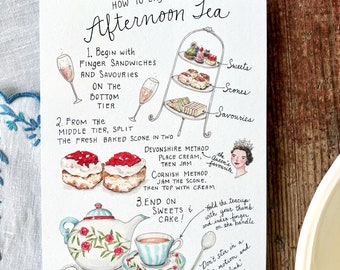 HOW TO
Afternoon Tea
1. BEGIN WITH
FINGER SANDWICHES
AND SAVOURIES
ON THE
BOTTOM
TIER
Sweets
Scones
Savouries
2. FROM THE
MIDDLE TIER, SPLIT
THE FRESH BAKED SCONE IN TWO
DEVONSHIRE METHOD
PLACE CREAM,
THEN JAM
the Queen's
favourite
CORNISH METHOD
JAM THE SCONE,
THEN TOP WITH CREAM
3. END ON
SWEETS &
CAKE!
Hold the teacup
with your thumb
and index finger
on the handle
Don't stir in a
motion and